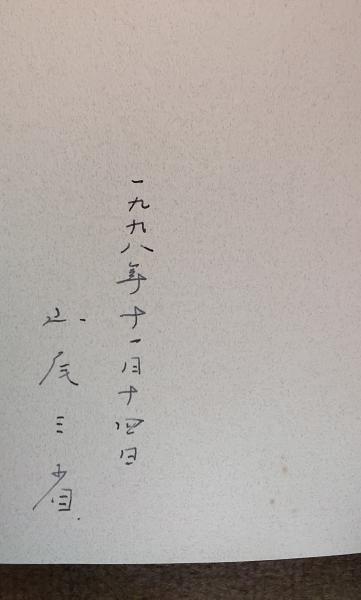 一九九八年十一月十四日
山尾三省